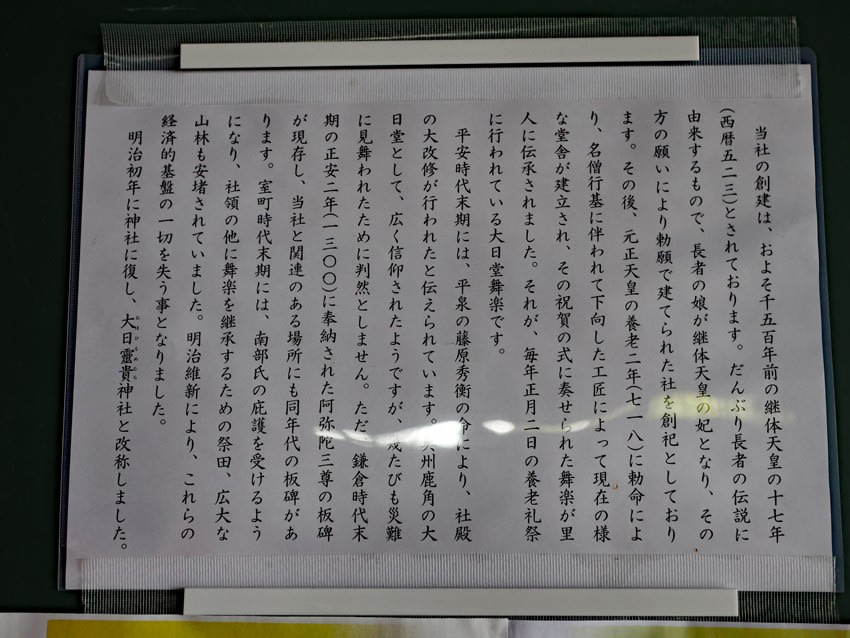 当社の創建は、およそ千五百年前の継体天皇の十七年
(西暦五二三)とされております。だんぶり長者の伝説に
由来するもので、長者の娘が継体天皇の妃となり、その
方の願いにより勅願で建てられた社を創祀としており
ます。その後、元正天皇の養老二年(七一八)に勅命によ
り、名僧行基に伴われて下向した工匠によって現在の様
な堂舎が建立され、その祝賀の式に奏せられた舞楽が里
人に伝承されました。それが、毎年正月二日の養老礼祭
に行われている大日堂舞楽です。
平安時代末期には、平泉の藤原秀衡の命により、社殿
の大改修が行われたと伝えられています。奥州鹿角の大
日堂として、広く信仰されたようですが、幾たびも災難
に見舞われたために判然としません。ただ、鎌倉時代末
期の正安二年(一三〇〇)に奉納された阿弥陀三尊の板碑
が現存し、当社と関連のある場所にも同年代の板碑があ
ります。室町時代末期には、南部氏の庇護を受けるよう
になり、社領の他に舞楽を継承するための祭田、広大な
山林も安堵されていました。明治維新により、これらの
経済的基盤の一切を失う事となりました。
明治初年に神社に復し、大日靈貴神社と改称しました。